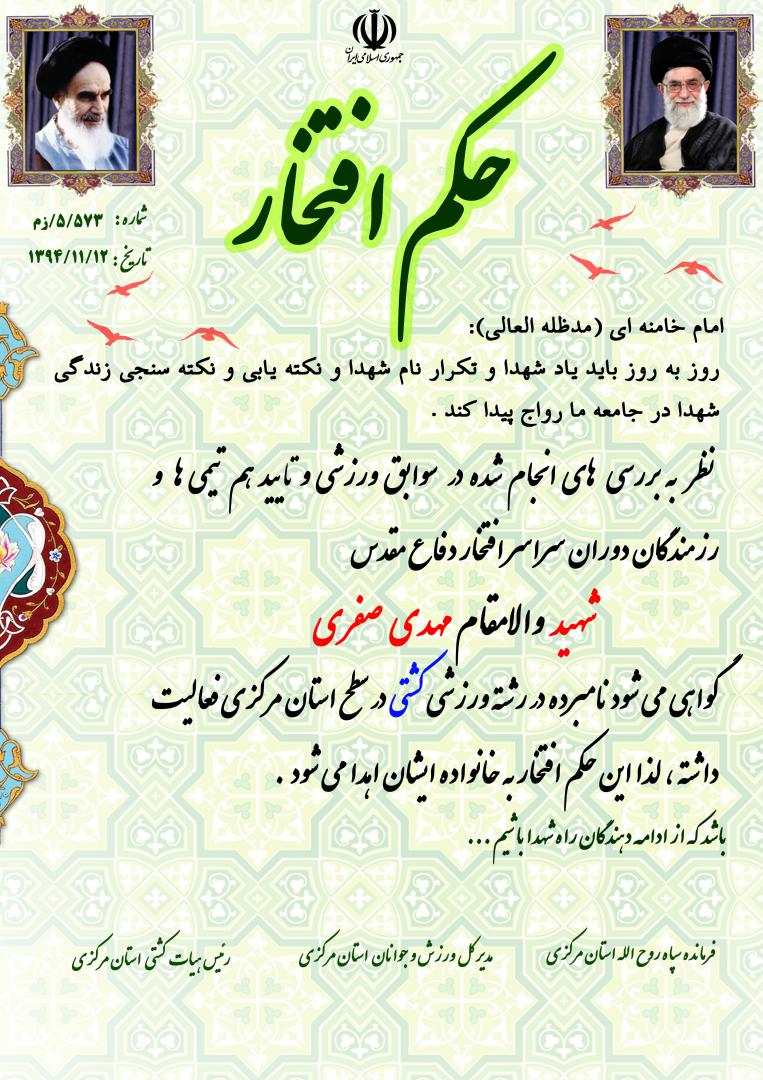 جمهوری اسلامی ایران
حکم افتخار
شماره: ۵/۵۷۳/زم
تاریخ: ۱۳۹۴/۱۱/۱۲
امام خامنه ای (مدظله العالی):
روز به روز باید یاد شهدا و تکرار نام شهدا و نکته یابی و نکته سنجی زندگی
شهدا در جامعه ما رواج پیدا کند .
نظر به بررسی های انجام شده در سوابق ورزشی و تایید هم تیمی ها و
رزمندگان دوران سراسر افتخار دفاع مقدس
شهید والامقام مهدی صفری
گواهی می شود نامبرده در رشته ورزشی کشتی در سطح استان مرکزی فعالیت
داشته ، لذا این حکم افتخار به خانواده ایشان اهدا می شود .
باشد که از ادامه دهندگان راه شهدا باشیم ...
فرمانده سپاه روح الله استان مرکزی
مدیر کل ورزش و جوانان استان مرکزی
رئیس هیات کشتی استان مرکزی